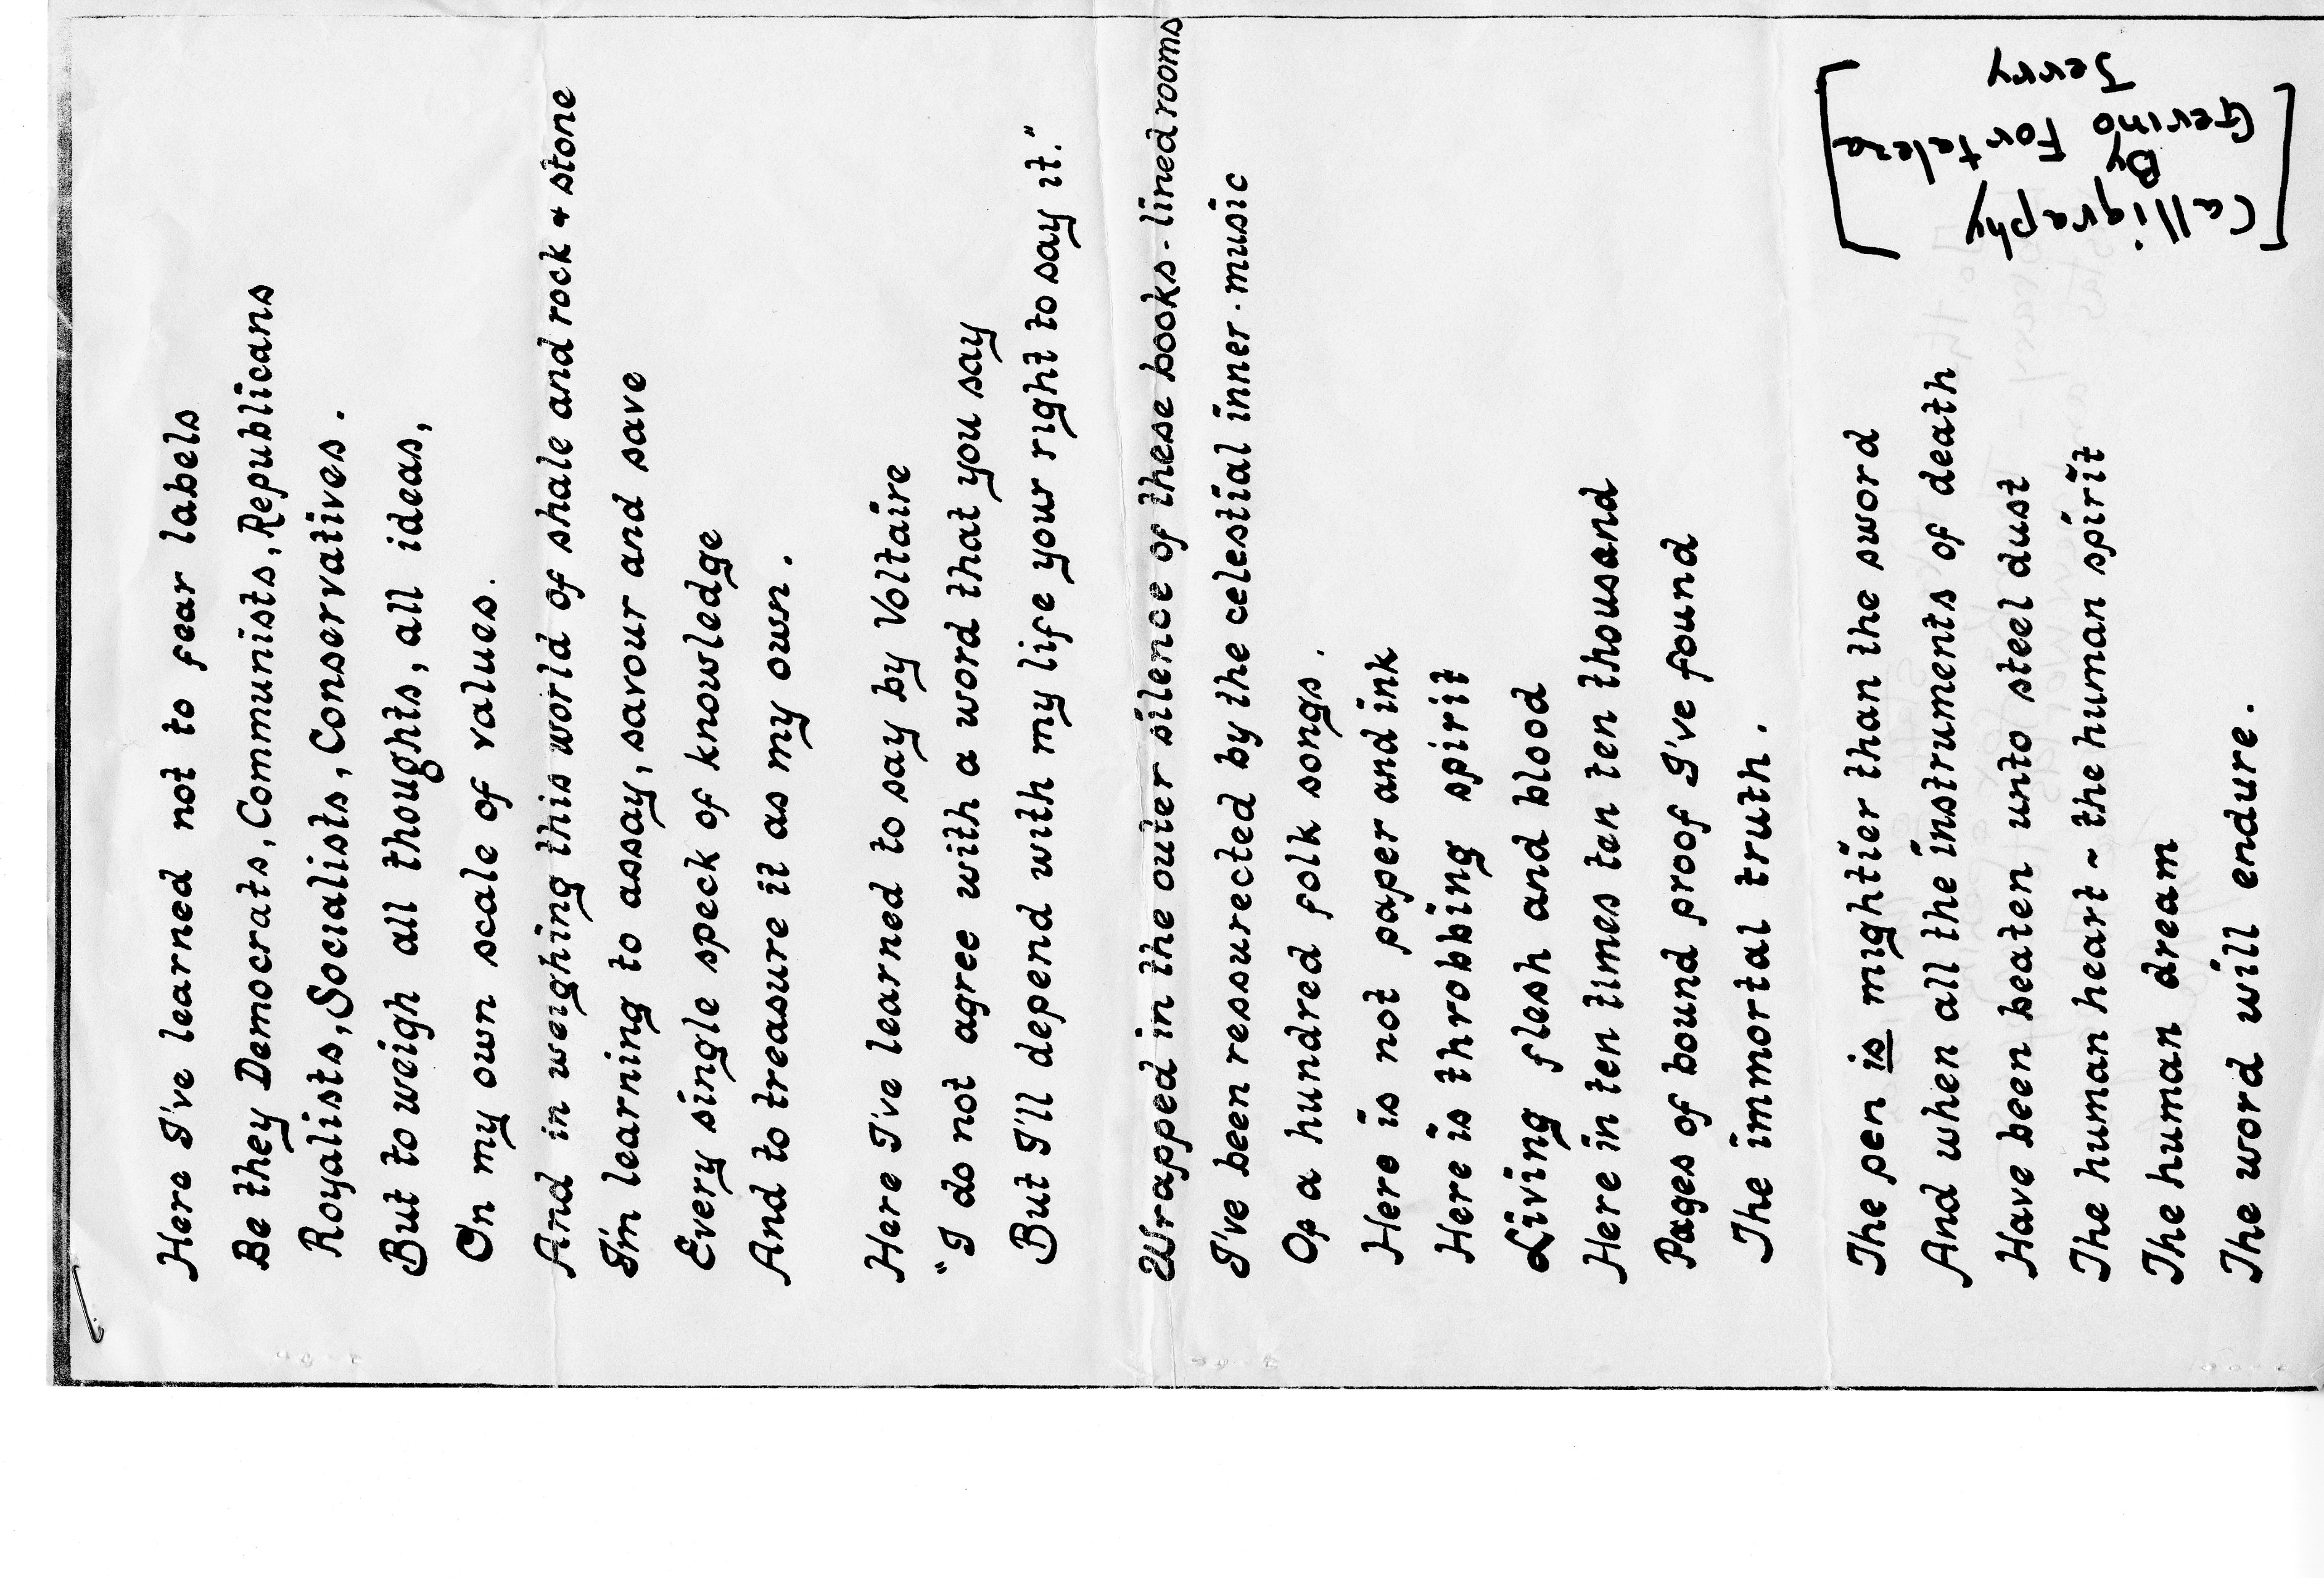 Here I've learned not to fear labels
Be they Democrats, Communists, Republicans
Royalists, Socialists, Conservatives.
But to weigh all thoughts, all ideas,
On my own scale of values.
And in weighing this world of shale and rock & stone
I'm learning to assay, savour and save
Every single speck of knowledge
And to treasure it as my own.
Here I've learned to say by Voltaire
"I do not agree with a word that you say
But I'll depend with my life your right to say it."
Wrapped in the outer silence of these books-lined rooms
I've been ressurected by the celestial inner·music
Of a hundred folk songs.
Here is not paper and ink
Here is throbbing spirit
Living flesh and blood
Here in ten times ten ten thousand
Pages of bound proof I've found
The immortal truth.
The pen is mightier than the sword
And when all the instruments of death
Have been beaten unto steel dust
The human heart ~ the human spirit
The human dream
The word will endure.
[Calligraphy
By
Gevino Fortaleza
Jerry]